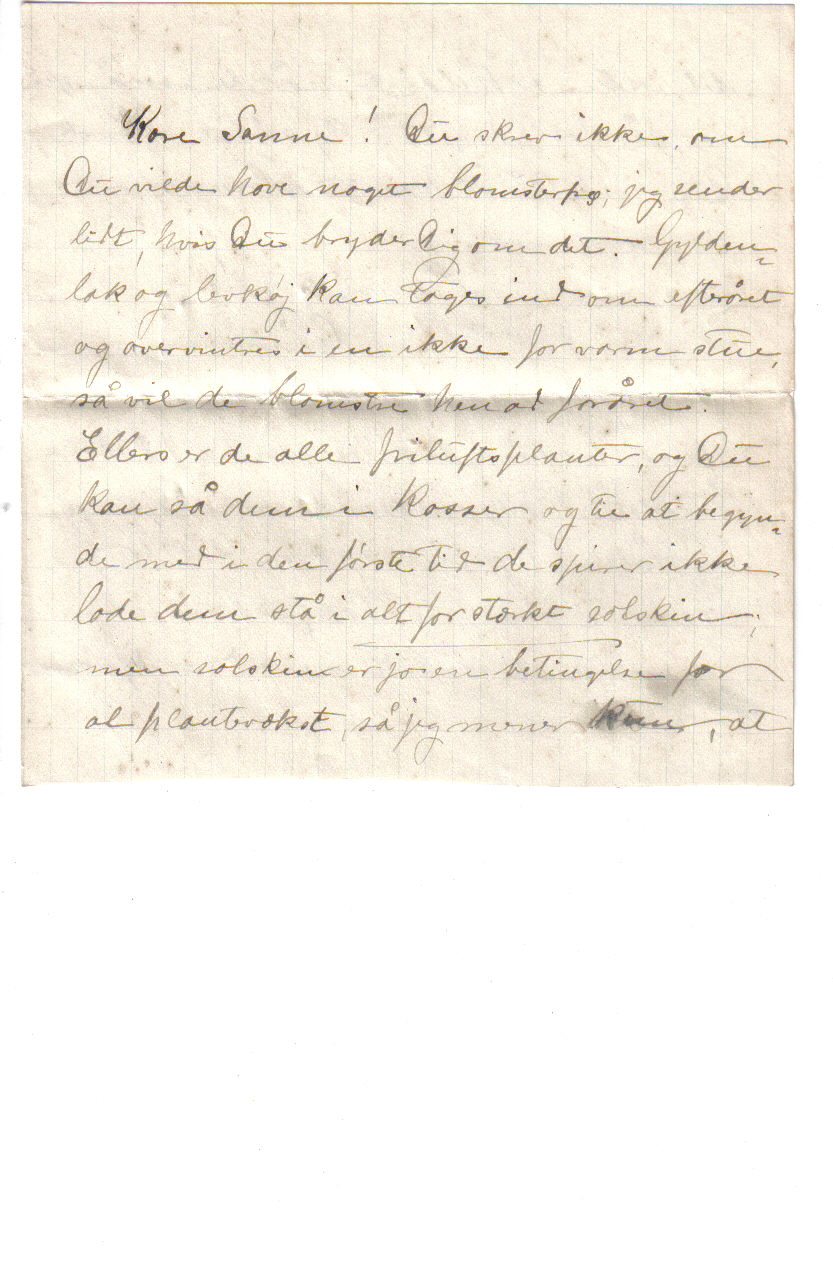 Kære Sanne! Du skrev ikke, om
Du vilde have noget blomsterfrø; jeg sender
lidt, hvis Du bryder Dig om det. Gylden=
lak og levkøj kan tages ind om efteråret
og overvintres i en ikke for varm stue,
så vil de blomstre hen ad foråret.
Ellers er de alle friluftsplanter, og Du
kan så dem i Kasser og til at begyn=
de med i den første tid de spirer ikke
lade dem stå i alt for stærkt solskin;
men solskin er jo en betingelse for
al plantevækst, så jeg mener kun, at